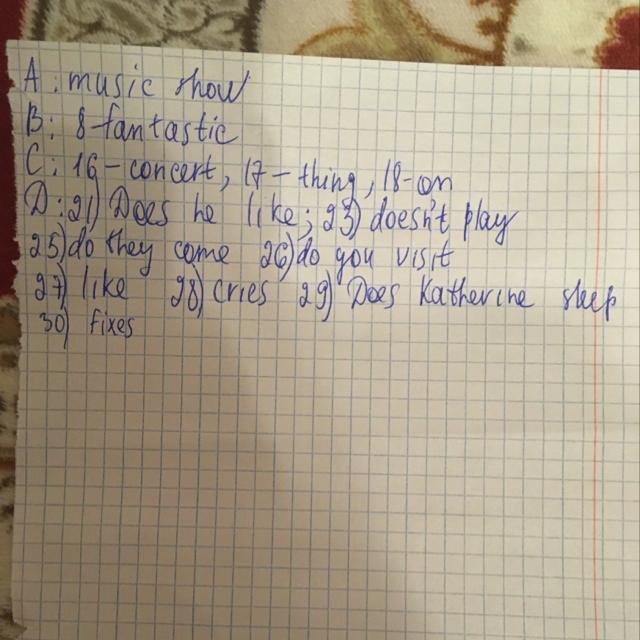 A: music show
B: 8 fantastic
C: 16 - concert, 17 - thing, 18 - on
D: 21) Does he like; 23) doesn't play
25) do they come 26) do you visit
27) like 28) cries 29) Does Katherine sleep
30) fixes